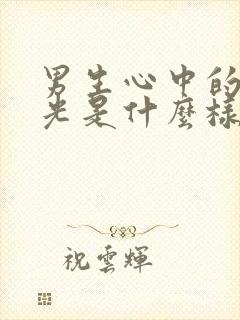 男生心中的
光是什麼樣
祝雲輝